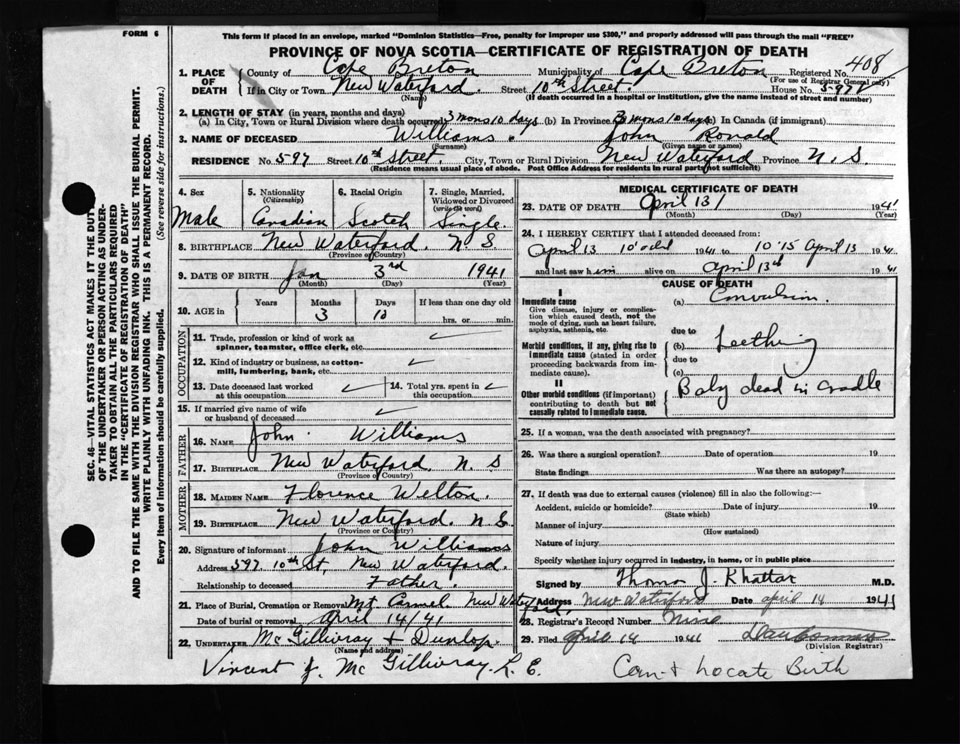 FORM 6
This form if placed in an envelope, marked "Dominion Statistics—Free, penalty for improper use $300," and properly addressed will pass through the mail "FREE"
PROVINCE OF NOVA SCOTIA—CERTIFICATE OF REGISTRATION OF DEATH
408
1. PLACE OF DEATH County of Cape Breton Municipality of Cape Breton Registered No.
(For use of Registrar General only)
If in City or Town New Waterford. Street 10th Street. House No. 597
(Name) (If death occurred in a hospital or institution, give the name instead of street and number)
2. LENGTH OF STAY (in years, months and days)
(a) In City, Town or Rural Division where death occurred 3 mons 10 days (b) In Province 3 mons 10 days (c) In Canada (if immigrant)
3. NAME OF DECEASED Williams. John Ronald
(Surname) (Given name or names)
RESIDENCE No. 597 Street 10th Street. City, Town or Rural Division New Waterford Province N. S
(Residence means usual place of abode. Post Office Address for residents in rural parts not sufficient)
4. Sex Male
5. Nationality (Citizenship) Canadian
6. Racial Origin Scotch
7. Single, Married, Widowed or Divorced (write the word) Single.
8. BIRTHPLACE New Waterford. N S
(Province or Country)
9. DATE OF BIRTH Jan 3rd 1941
(Month) (Day) (Year)
10. AGE in Years Months 3 Days 10 If less than one day old hrs. or min.
OCCUPATION
11. Trade, profession or kind of work as spinner, teamster, office clerk, etc. ✓
12. Kind of industry or business, as cotton-mill, lumbering, bank, etc. ✓
13. Date deceased last worked at this occupation ✓ 14. Total yrs. spent in this occupation ✓
15. If married give name of wife or husband of deceased ✓
FATHER
16. NAME John Williams
17. BIRTHPLACE New Waterford. N. S
(Province or Country)
MOTHER
18. MAIDEN NAME Florence Welton.
19. BIRTHPLACE New Waterford. N. S.
(Province or Country)
20. Signature of informant John Williams
Address 597 10th St, New Waterford.
Relationship to deceased Father.
21. Place of Burial, Cremation or Removal Mt. Carmel. New Waterford
Date of burial or removal April 14/41
22. UNDERTAKER McGillivray & Dunlop.
(Name and address)
Vincent J. McGillivray. L. E.
MEDICAL CERTIFICATE OF DEATH
23. DATE OF DEATH April 13/ 1941
(Month) (Day) (Year)
24. I HEREBY CERTIFY that I attended deceased from:
April 13 10 1941 to 10'15 April 13 1941
and last saw him alive on April 13th 1941
CAUSE OF DEATH
I
Immediate cause
Give disease, injury or complication which caused death, not the mode of dying, such as heart failure, asphyxia, asthenia, etc.
(a) Convulsion.
due to
Morbid conditions, if any, giving rise to immediate cause (stated in order proceeding backwards from immediate cause).
(b) Teething
due to
(c)
II
Other morbid conditions (if important) contributing to death but not causally related to immediate cause.
Baby dead in cradle
25. If a woman, was the death associated with pregnancy?
26. Was there a surgical operation? Date of operation 19
State findings Was there an autopsy?
27. If death was due to external causes (violence) fill in also the following:—
Accident, suicide or homicide? Date of injury 19
(State which)
Manner of injury
(How sustained)
Nature of injury
Specify whether injury occurred in industry, in home, or in public place
Signed by Thomas J. Khattar M.D.
Address New Waterford Date April 14 1941
28. Registrar's Record Number Nine
29. Filed April 14 1941
(Division Registrar)
Can't Locate Birth
SEC. 46—VITAL STATISTICS ACT MAKES IT THE DUTY
OF THE UNDERTAKER OR PERSON ACTING AS UNDER-
TAKER TO OBTAIN ALL THE PARTICULARS REQUIRED
IN THE "CERTIFICATE OF REGISTRATION OF DEATH"
AND TO FILE THE SAME WITH THE DIVISION REGISTRAR WHO SHALL ISSUE THE BURIAL PERMIT.
WRITE PLAINLY WITH UNFADING INK. THIS IS A PERMANENT RECORD.
Every item of information should be carefully supplied. (See reverse side for instructions.)